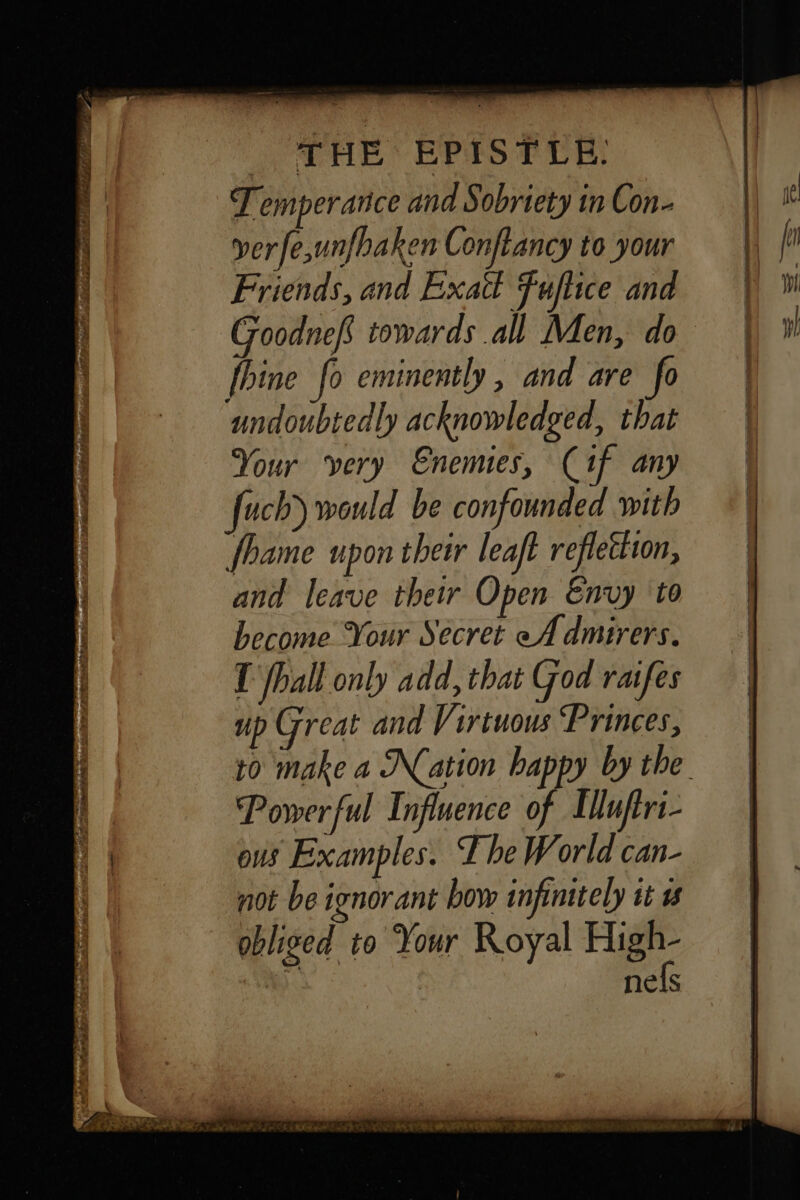 THE EPISTLE.
Temperance and Sobriety in Con-
verſe,unſhaken Conſtancy to your
Friends, and Exact Juſtice and
Goodneſs towards all Men, do
ſhine ſo eminently, and are ſo
undoubtedly acknowledged, that
Your very Enemies, (if any
ſuch) would be confounded with
ſhame upon their leaſt reflection,
and leave their Open Envy to
become Your Secret Admirers.
I ſhall only add, that God raiſes
up Great and Virtuous Princes,
to make a Nation happy by the
Powerful Influence of Illuſtri-
ous Examples. The World can-
not be ignorant how infinitely it is
obliged to Your Royal High-
neſs